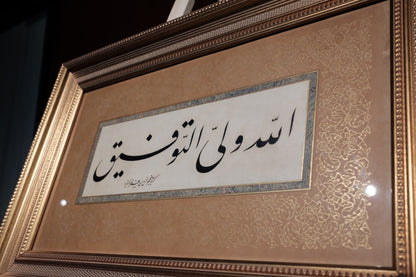 الله ولیّ التّوفیق